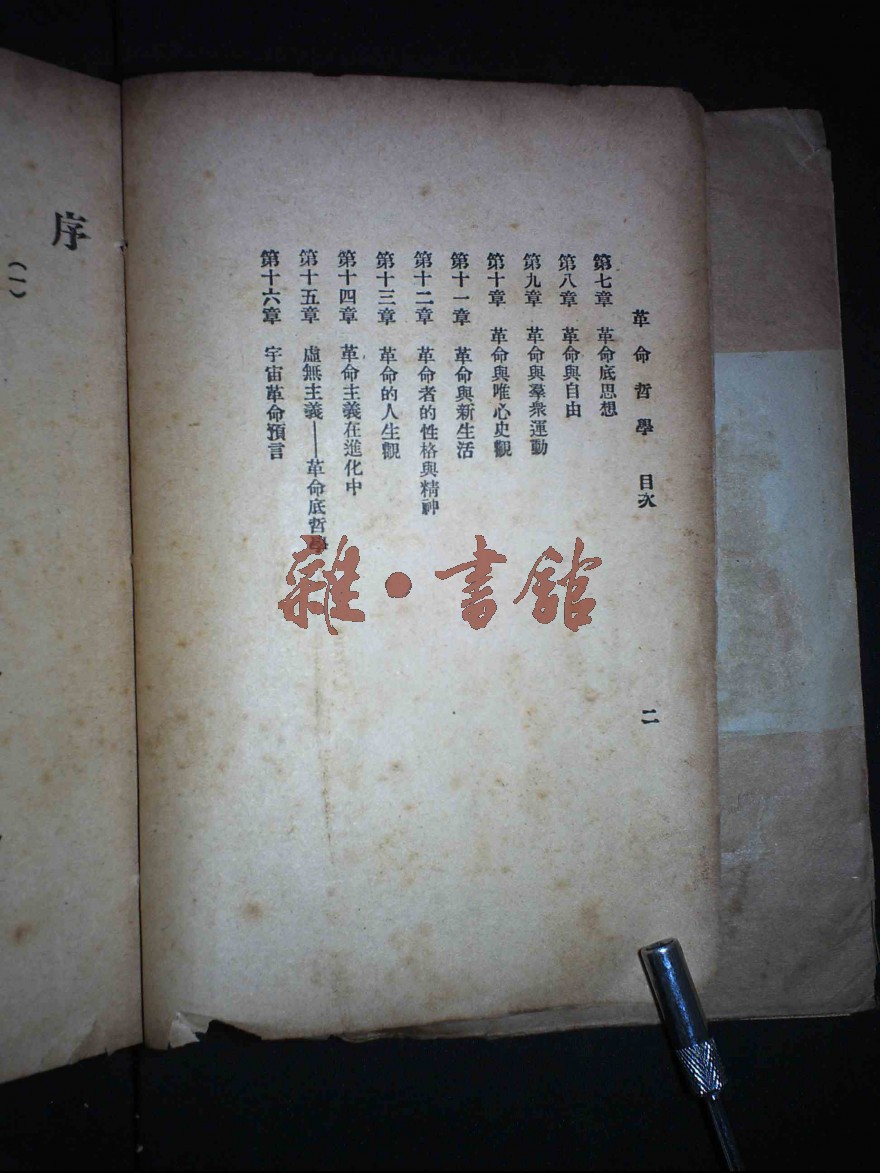 革命哲學 目次 二
第七章 革命底思想
第八章 革命與自由
第九章 革命與羣衆運動
第十章 革命與唯心史觀
第十一章 革命與新生活
第十二章 革命者的性格與精神
第十三章 革命的人生觀
第十四章 革命主義在進化中
第十五章 虛無主義——革命底哲學
第十六章 宇宙革命預言
序
(一)
雜·書館